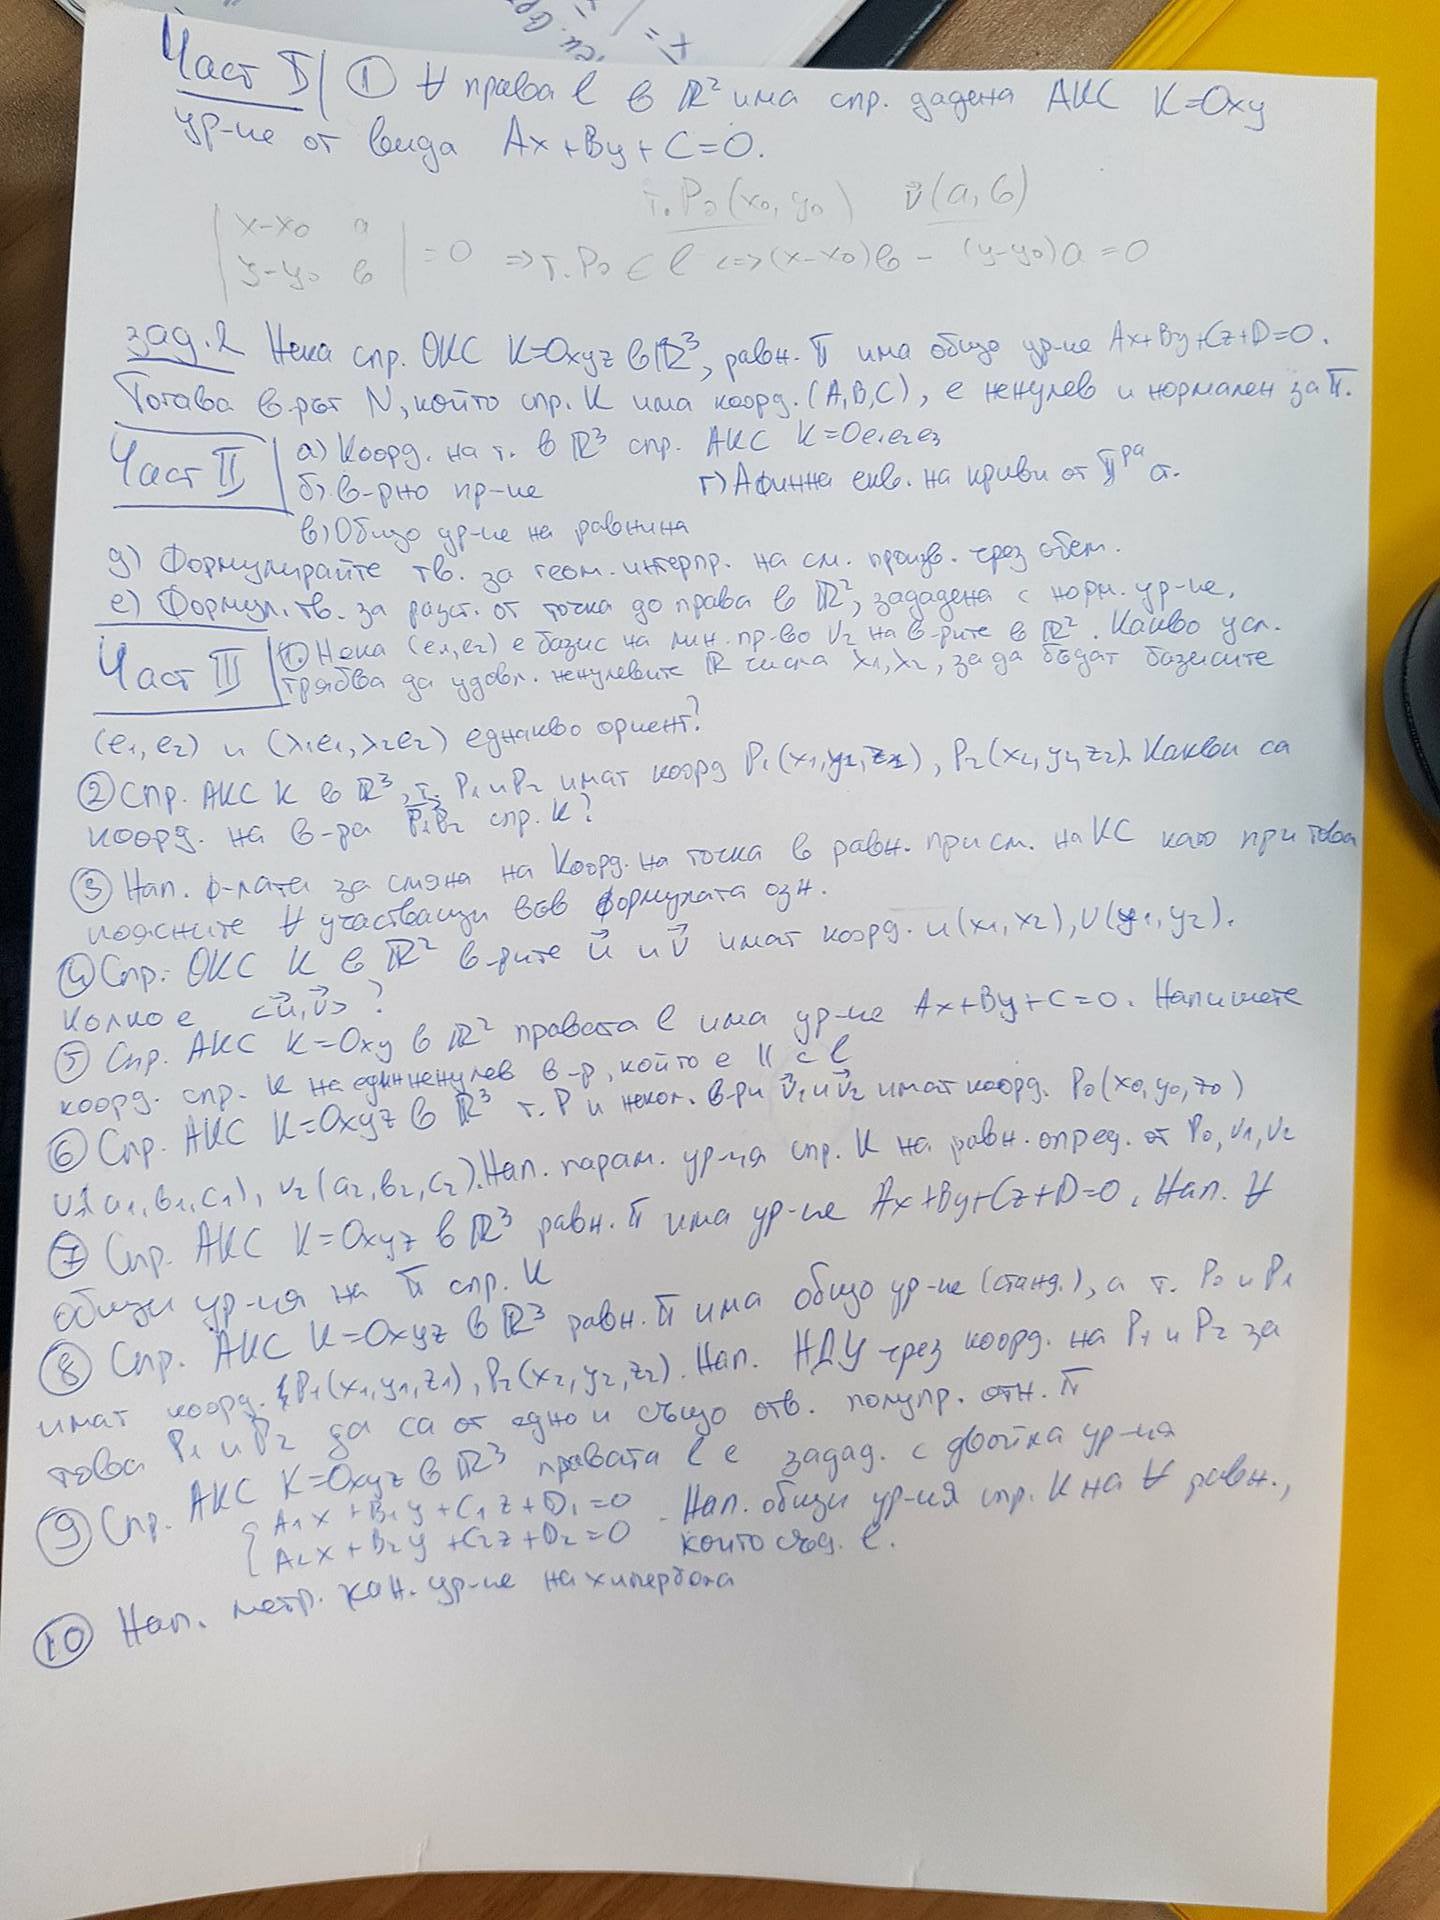 Част I | ① ∀ права l в ℝ² има спр. дадена АКС K=Oxy
ур-ие от вида Ax+By+C=0.
т.P₀(x₀,y₀) v⃗(a,b)
| x-x₀ a |
| y-y₀ b | =0 ⇒ т.P₀ ∈ l <=> (x-x₀)b - (y-y₀)a = 0
зад.2 Нека спр. ОКС K=Oxyz в ℝ³, равн. π има общо ур-ие Ax+By+Cz+D=0.
Тогава в-рът N, който спр. K има коорд. (A,B,C), е ненулев и нормален за π.
Част II | а) Коорд. на т. в ℝ³ спр. АКС K=Oe₁e₂e₃
б) в-рно пр-ие г) Афинна екв. на криви от II ра ст.
в) Общо ур-ие на равнина
д) Формулирайте тв. за геом. интерпр. на см. произв. чрез обем.
е) Формул. тв. за разст. от точка до права в ℝ², зададена с норм. ур-ие.
Част III | 1. Нека (e₁,e₂) е базис на лин. пр-во V₂ на в-рите в ℝ². Какво усл.
трябва да удовл. ненулевите ℝ числа λ₁,λ₂, за да бъдат базисите
(e₁,e₂) и (λ₁e₁,λ₂e₂) еднакво ориент?
② Спр. АКС K в ℝ³, т. P₁ и P₂ имат коорд P₁(x₁,y₁,z₁), P₂(x₂,y₂,z₂). Какви са
коорд. на в-ра P₁P₂ спр. K?
③ Нап. ф-лата за смяна на коорд. на точка в равн. при см. на КС като при това
поясните ∀ участващи във формулата озн.
④ Спр. ОКС K в ℝ² в-рите u⃗ и v⃗ имат коорд. u(x₁,x₂), v(y₁,y₂).
Колко е <u⃗,v⃗>?
⑤ Спр. АКС K=Oxy в ℝ² правата l има ур-ие Ax+By+C=0. Напишете
коорд. спр. K на един ненулев в-р, който е || с l
⑥ Спр. АКС K=Oxyz в ℝ³ т. P и некол. в-ри v⃗₁ и v⃗₂ имат коорд. P₀(x₀,y₀,z₀)
v₁(a₁,b₁,c₁), v₂(a₂,b₂,c₂). Нап. парам. ур-ия спр. K на равн. опред. от P₀,v₁,v₂
⑦ Спр. АКС K=Oxyz в ℝ³ равн. π има ур-ие Ax+By+Cz+D=0. Нап. ∀
общи ур-ия на π спр. K
⑧ Спр. АКС K=Oxyz в ℝ³ равн. π има общо ур-ие (станд.), а т. P₂ и P₁
имат коорд. P₁(x₁,y₁,z₁), P₂(x₂,y₂,z₂). Нап. НДУ чрез коорд. на P₁ и P₂ за
това P₁ и P₂ да са от едно и също отв. полупр. отн. π
⑨ Спр. АКС K=Oxyz в ℝ³ правата l е задад. с двойка ур-ия
{ A₁x+B₁y+C₁z+D₁=0 . Нап. общи ур-ия спр. K на ∀ равн.,
A₂x+B₂y+C₂z+D₂=0 които съд. l.
⑩ Нап. метр. кан. ур-ие на хипербола